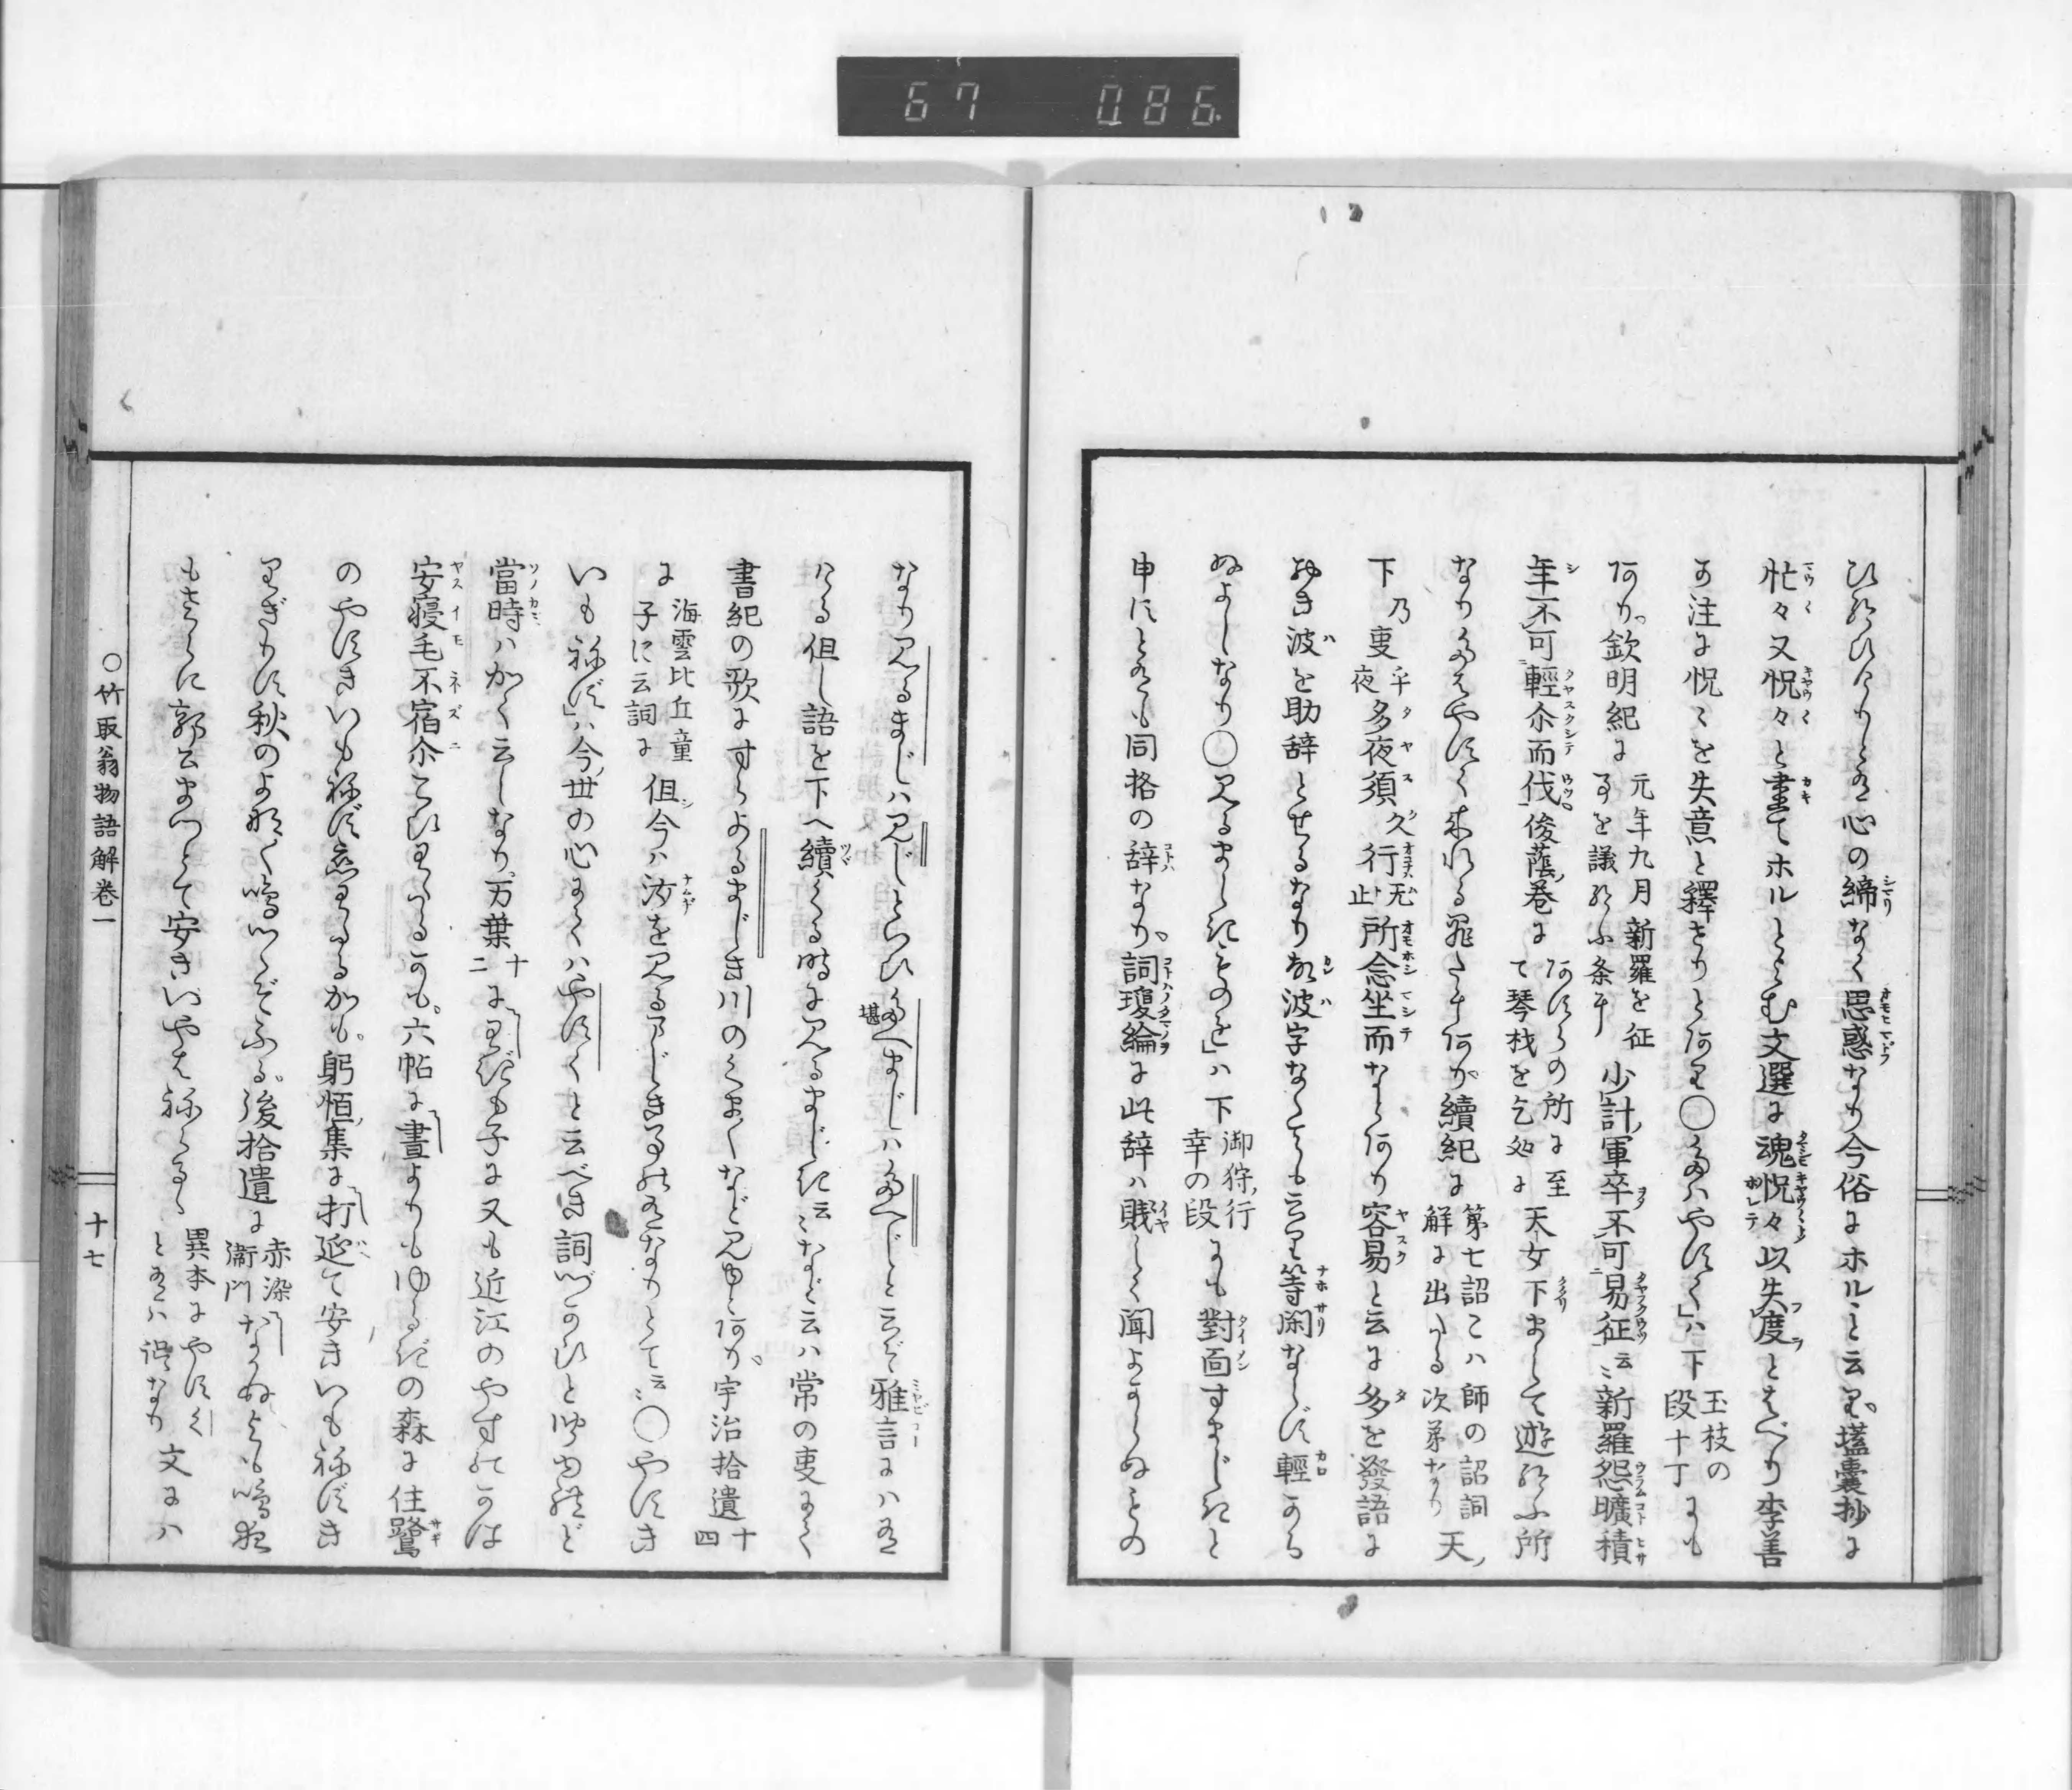 67 086
ひれひたりとは心の締なく思惑なり今俗にホルヽと云り壒囊抄に
忙々又怳々と書てホルヽとよむ文選に魂怳々以失度とはべり李善
が注に怳々を失意と釋せりとあり〇たはやすく」ハ下玉枝の段十丁にも
あり。欽明紀に元年九月新羅を征る事を議給ふ条少計軍卒不可易征云々新羅怨曠積
年不可輕尒而伐俊蔭卷にあすらの所に至て琴材を乞処に天女下まして遊給ふ所
なりたはやすく来れる罪云々あり續紀に第七詔こハ師の詔詞解に出たる次第なり天
下乃事乎夜多夜須久行无止所念坐而なとあり容易と云に多を發語に
おき波を助辞とせるなり故波字なくても云り等閑ならず輕から
ぬよしなり〇見るましきものを」ハ下御狩行幸の段にも對面すまじきと
申すとあるも同格の辞なり。詞瓊綸に此辞ハ賎しく聞よからぬもの
なり見るまじハ見じといひ堪まじハたへじと云ぞ雅言にハある
ける但し語を下へ續くる時に見るまじき云々など云ハ常の事にて
書紀の歌にすらよるまじき川のくまくなど見ゆとあり。宇治拾遺十四
に海雲比丘童子に云詞に但今ハ汝を見るまじき事のあるなりとて云々〇やすき
いも祢ず」ハ今世の心にてハやすくと云べき詞づかひと聞ゆれど
當時ハかく云しなり。万葉十二にわぎも子に又も近江のやすのかは
安寝毛不宿尒こひわたるかも。六帖に晝よりもゆるぎの森に住鷺
のやすきいも祢ず恋わたるかも。躬恒集に打延て安きいも祢ずき
りぎりす秋のよなく鳴つゝぞふる。後拾遺に赤染衞門なかぬよも鳴夜
もさらに郭公まつとて安きいやは祢らるゝ異本にやすくとあるハ誤なり文にハ
〇竹取翁物語解卷一
十七